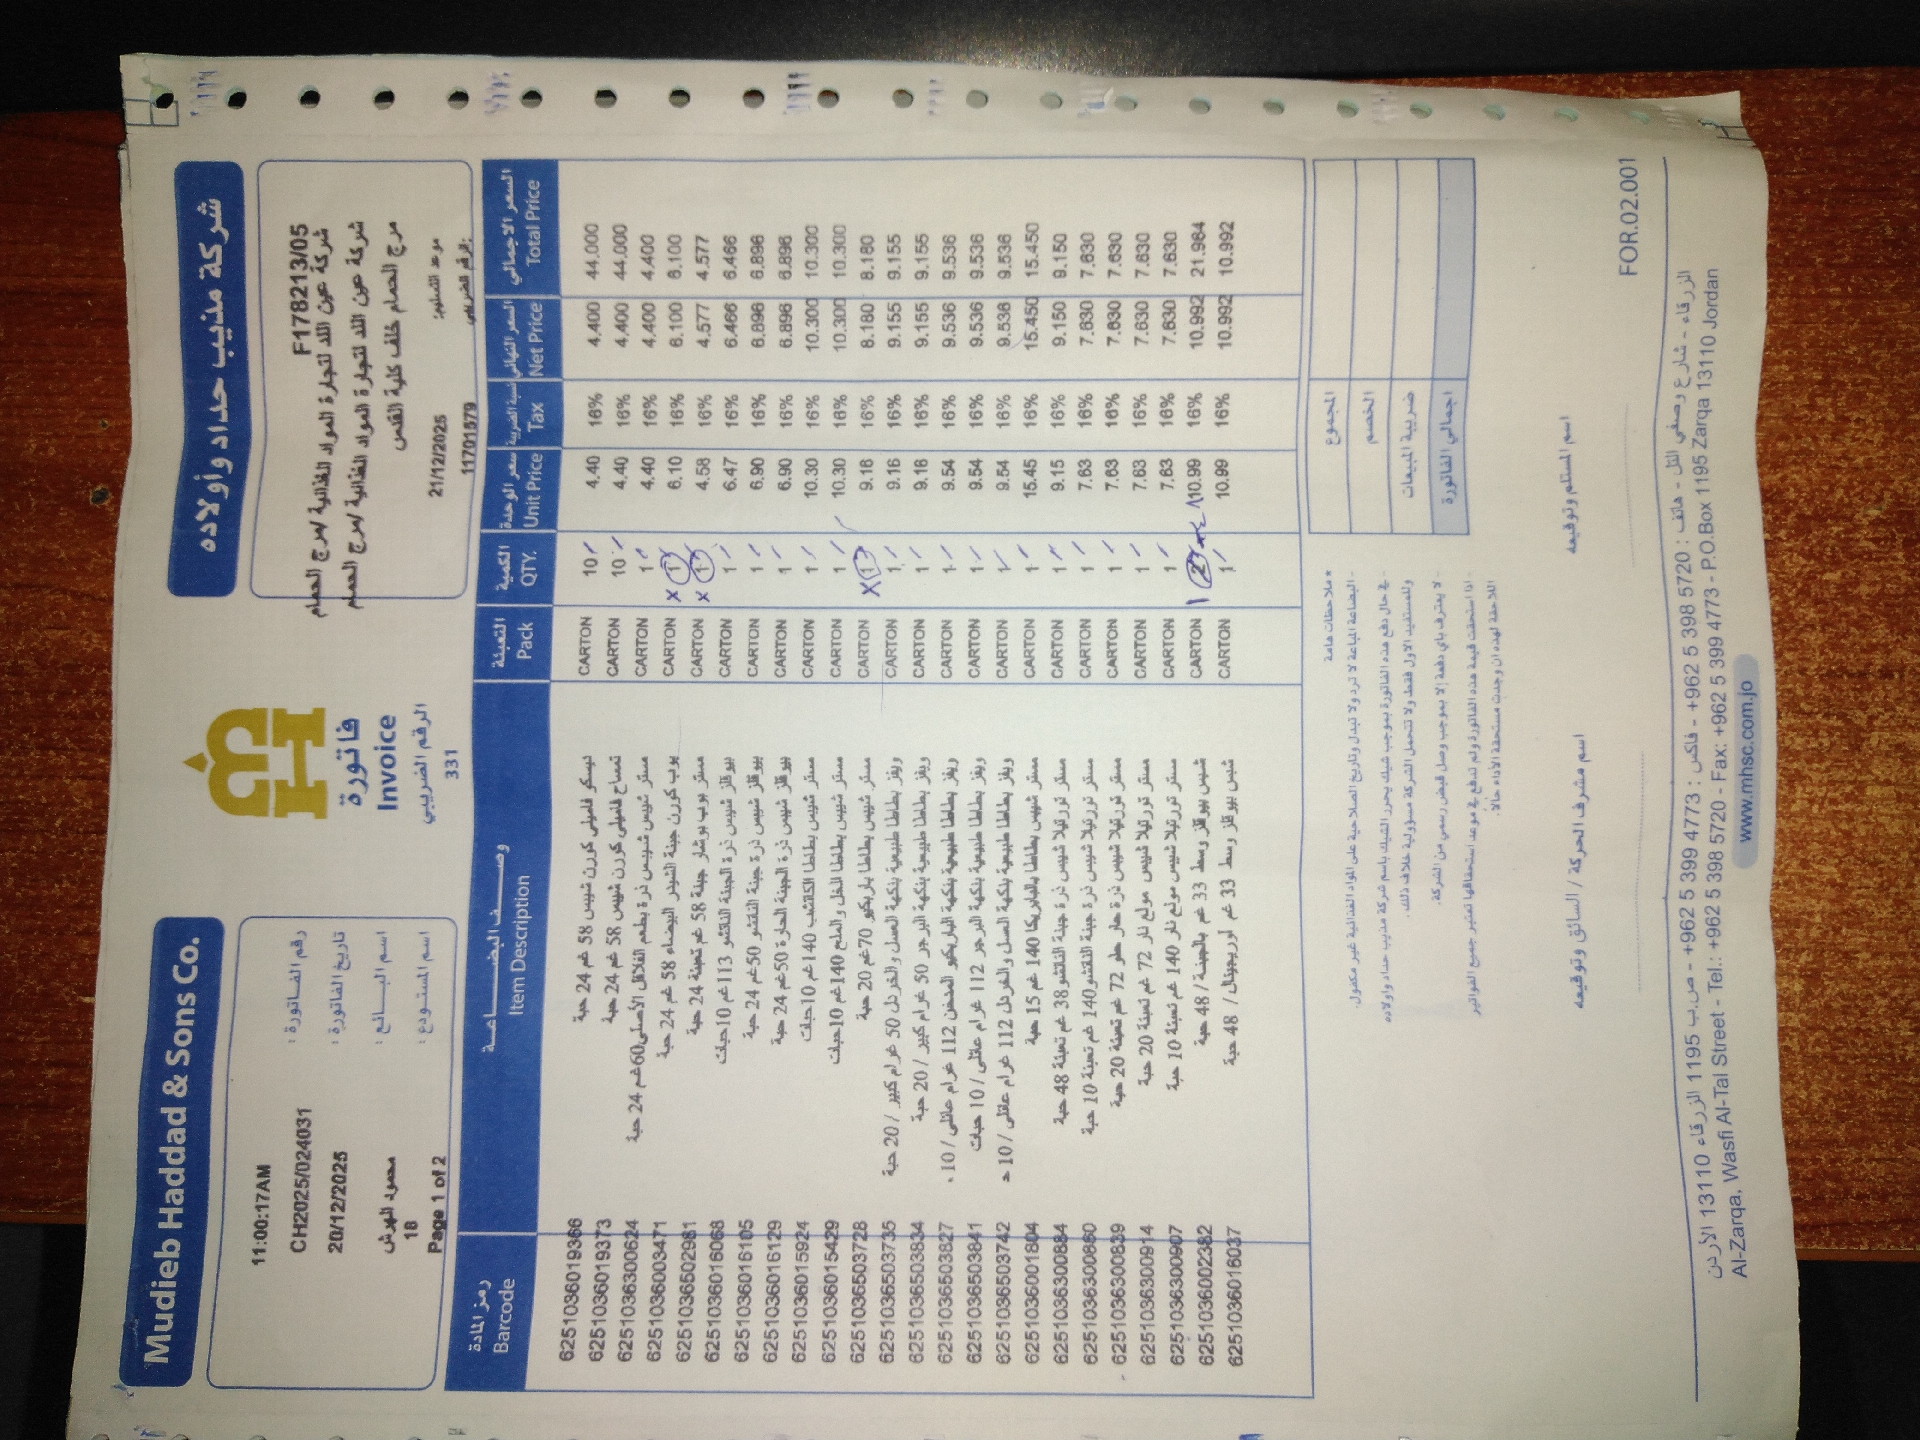 Mudieb Haddad & Sons Co.
شركة مذيب حداد وأولاده
فاتورة
Invoice
الرقم الضريبي
331
11:00:17AM
رقم الفاتورة :
CH2025/024031
تاريخ الفاتورة :
20/12/2025
اسم البائع :
محمود الهرش
اسم المستودع :
18
Page 1 of 2
F178213/05
شركة عين اللد لتجارة المواد الغذائية /مرج الحمام
شركة عين اللد لتجارة المواد الغذائية /مرج الحمام
مرج الحمام خلف كلية القدس
موعد التسليم: 21/12/2025
الرقم الضريبي: 11701579
رمز المادة وصف البضاعة التعبئة الكمية سعر الوحدة نسبة الضريبة السعر النهائي السعر الاجمالي
Barcode Item Description Pack QTY. Unit Price Tax Net Price Total Price
6251036019366 ديسكو فاميلي كورن شيبس 58 غم 24 حبة CARTON 10 4.40 16% 4.400 44.000
6251036019373 تمساح فاميلي كورن شيبس 58 غم 24 حبة CARTON 10 4.40 16% 4.400 44.000
6251036300624 مستر شيبس شيبس ذرة بطعم الفلافل الأصلي60غم 24 حبة CARTON 1 4.40 16% 4.400 4.400
6251036003471 بوب كورن جبنة الشيدر البيضاء 58 غم 24 حبة CARTON x 1 6.10 16% 6.100 6.100
6251036502981 مستر بوب بوشار جبنة 58 غم تعبئة 24 حبة CARTON x 1 4.58 16% 4.577 4.577
6251036016068 بيوقلز شيبس ذرة الجبنة الناتشو 113غم 10حبات CARTON 1 6.47 16% 6.466 6.466
6251036016105 بيوقلز شيبس ذرة جبنة الناتشو 50غم 24 حبة CARTON 1 6.90 16% 6.896 6.896
6251036016129 بيوقلز شيبس ذرة الجبنة الحارة 50غم 24 حبة CARTON 1 6.90 16% 6.896 6.896
6251036015924 مستر شيبس بطاطا الكاتشب 140غم 10حبات CARTON 1 10.30 16% 10.300 10.300
6251036015429 مستر شيبس بطاطا الخل والملح 140غم 10حبات CARTON 1 10.30 16% 10.300 10.300
6251036503728 مستر شيبس بطاطا باربكيو 70غم 20 حبة CARTON x 1 8.18 16% 8.180 8.180
6251036503735 ويفز بطاطا طبيعية بنكهة العسل والخردل 50 غرام كبير / 20 حبة CARTON 1 9.16 16% 9.155 9.155
6251036503834 ويفز بطاطا طبيعية بنكهة البرجر 50 غرام كبير / 20 حبة CARTON 1 9.16 16% 9.155 9.155
6251036503827 ويفز بطاطا طبيعية بنكهة الباربكيو المدخن 112 غرام عائلي / 10 CARTON 1 9.54 16% 9.536 9.536
6251036503841 ويفز بطاطا طبيعية بنكهة البرجر 112 غرام عائلي / 10 حبات CARTON 1 9.54 16% 9.536 9.536
6251036503742 ويفز بطاطا طبيعية بنكهة العسل والخردل 112 غرام عائلي / 10 ح CARTON 1 9.54 16% 9.536 9.536
6251036001804 مستر شيبس بطاطا بالبابريكا 140 غم 15 حبة CARTON 1 15.45 16% 15.450 15.450
6251036300884 مستر تورتيلا شيبس ذرة جبنة الناتشو38 غم تعبئة 48 حبة CARTON 1 9.15 16% 9.150 9.150
6251036300860 مستر تورتيلا شيبس ذرة جبنة الناتشو140 غم تعبئة 10 حبة CARTON 1 7.63 16% 7.630 7.630
6251036300839 مستر تورتيلا شيبس ذرة حار حلو 72 غم تعبئة 20 حبة CARTON 1 7.63 16% 7.630 7.630
6251036300914 مستر تورتيلا شيبس مولع نار 72 غم تعبئة 20 حبة CARTON 1 7.63 16% 7.630 7.630
6251036300907 مستر تورتيلا شيبس مولع نار 140 غم تعبئة 10 حبة CARTON 1 7.63 16% 7.630 7.630
6251036002382 شيبس بيوقلز وسط 33 غم بالجبنة / 48 حبة CARTON 1 2 10.99 16% 10.992 21.984
6251036016037 شيبس بيوقلز وسط 33 غم اوريجينال / 48 حبة CARTON 1 10.99 16% 10.992 10.992
المجموع
الخصم
ضريبة المبيعات
اجمالي الفاتورة
* ملاحظات هامة
- البضاعة المباعة لا ترد ولا تبدل وتاريخ الصلاحية على المواد الغذائية غير مكفول.
- في حال دفع هذه الفاتورة بموجب شيك يحرر الشيك باسم شركة مذيب حداد واولاده
وللمستفيد الاول فقط ولا تتحمل الشركة مسؤولية خلاف ذلك.
- لا يعترف باي دفعة إلا بموجب وصل قبض رسمي من الشركة.
- اذا استحقت قيمة هذه الفاتورة ولم تدفع في موعد استحقاقها تعتبر جميع الفواتير
اللاحقة لهذه ان وجدت مستحقة الأداء حالا.
اسم مشرف الحركة / السائق وتوقيعه
اسم المستلم وتوقيعه
FOR.02.001
الزرقاء - شارع وصفي التل - هاتف : 5720 398 5 962+ - فاكس : 4773 399 5 962+ - ص.ب 1195 الزرقاء 13110 الأردن
Al-Zarqa, Wasfi Al-Tal Street - Tel.: +962 5 398 5720 - Fax: +962 5 399 4773 - P.O.Box 1195 Zarqa 13110 Jordan
www.mhsc.com.jo